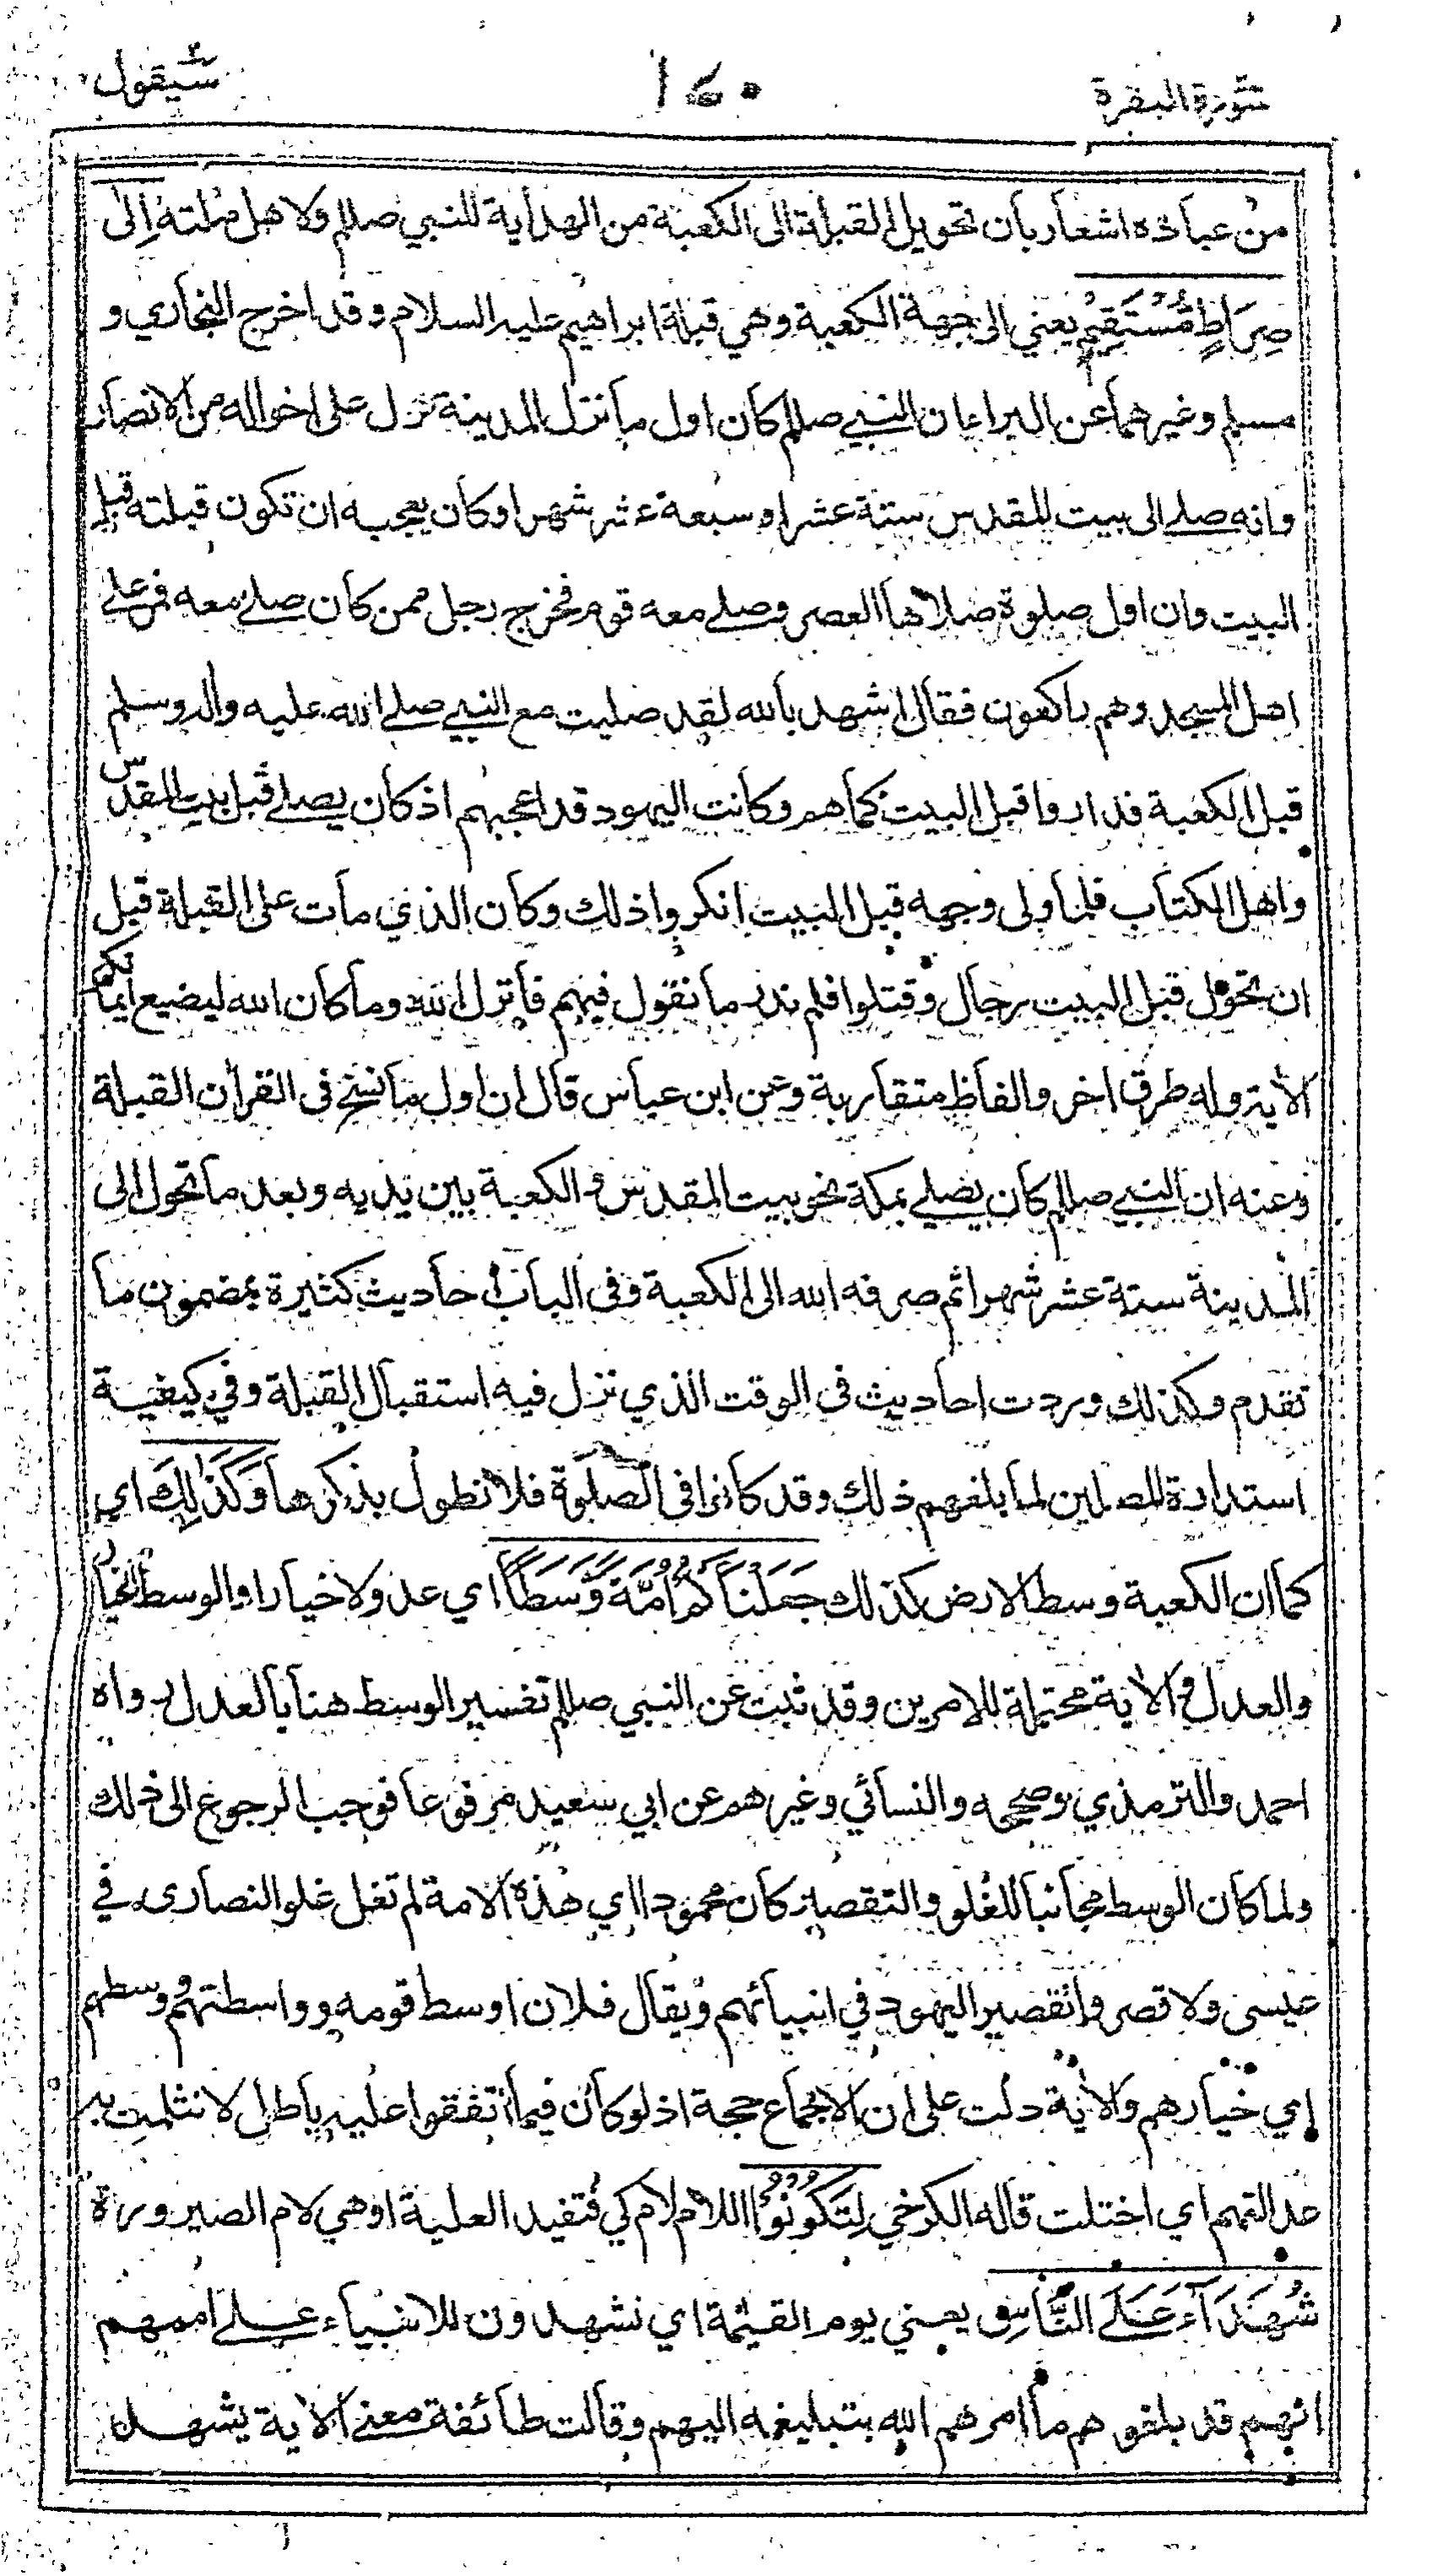 سورة البقرة ١٤٠ سيقول
من عباده اشعار بان تحويل القبلة الى الكعبة من الهداية للنبي صللم ولاهل ملته اِلٰى
صِرَاطٍ مُّسْتَقِيْمٍ يعني الى جهة الكعبة وهي قبلة ابراهيم عليه السلام وقد اخرج البخاري و
مسلم وغيرهما عن البراء ان النبي صللم كان اول ما نزل المدينة نزل على اخواله من الانصار
وانه صلى الى بيت المقدس ستة عشر او سبعة عشر شهرا وكان يعجبه ان تكون قبلته قبل
البيت وان اول صلوة صلاها العصر وصلى معه قوم فخرج رجل ممن كان صلى معه فمر على
اهل المسجد وهم راكعون فقال اشهد بالله لقد صليت مع النبي صلى الله عليه وآله وسلم
قبل الكعبة فداروا قبل البيت كما هم وكانت اليهود قد اعجبهم اذ كان يصلي قبل بيت المقدس
واهل الكتاب فلما ولى وجهه قبل البيت انكروا ذلك وكان الذي مات على القبلة قبل
ان تحول قبل البيت رجال وقتلوا فلم ندر ما نقول فيهم فانزل الله وما كان الله ليضيع ايمانكم
الاية وله طرق اخر والفاظ متقاربة وعن ابن عباس قال ان اول ما نسخ في القرآن القبلة
وعنه ان النبي صللم كان يصلي بمكة نحو بيت المقدس والكعبة بين يديه وبعد ما تحول الى
المدينة ستة عشر شهرا ثم صرفه الله الى الكعبة وفي الباب احاديث كثيرة بمضمون ما
تقدم وكذلك وردت احاديث في الوقت الذي نزل فيه استقبال القبلة وفي كيفية
استدارة المصلين لما بلغهم ذلك وقد كانوا في الصلوة فلا نطول بذكرها وَكَذٰلِكَ اي
كما ان الكعبة وسط الارض كذلك جَعَلْنَاكُمْ اُمَّةً وَّسَطًا اي عدولا خيارا والوسط الخيار
والعدل والاية محتملة للامرين وقد ثبت عن النبي صللم تفسير الوسط هنا بالعدل رواه
احمد والترمذي وصححه والنسائي وغيرهم عن ابي سعيد مرفوعا فوجب الرجوع الى ذلك
ولما كان الوسط مجانبا للغلو والتقصير كان محمودا اي هذه الامة لم تغل غلو النصارى في
عيسى ولا قصروا تقصير اليهود في انبيائهم ويقال فلان اوسط قومه وواسطتهم ووسطهم
اي خيارهم والاية دلت على ان الاجماع حجة اذ لو كان فيما اتفقوا عليه باطل لانثلمت به
عدالتهم اي اختلت قاله الكرخي لِتَكُوْنُوْا اللام لام كي فتفيد العلية او هي لام الصيرورة
شُهَدَآءَ عَلَى النَّاسِ يعني يوم القيٰمة اي تشهدون للانبياء على اممهم
انهم قد بلغوهم ما امرهم الله بتبليغه اليهم وقالت طائفة معنى الاية يشهد